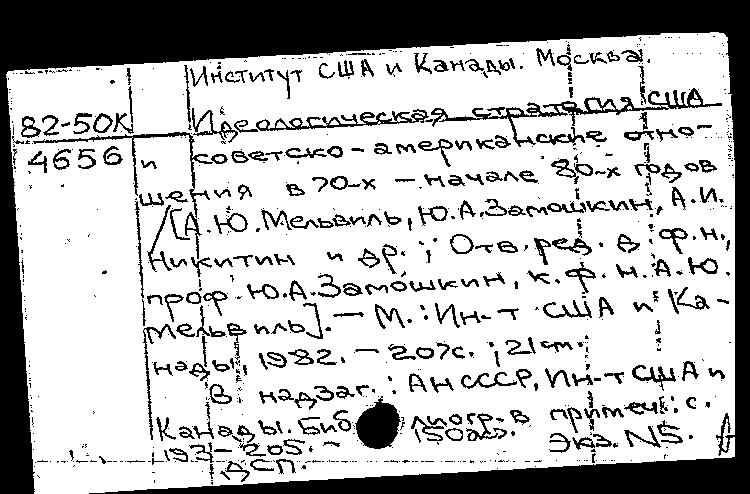 Институт США и Канады. Москва.
82-50К Идеологическая стратегия США
4656 и советско-американские отно-
шения в 70-х — начале 80-х годов
/[А.Ю.Мельвиль, Ю.А.Замошкин, А.И.
Никитин и др.; Отв. ред. д.ф.н.,
проф. Ю.А.Замошкин, к.ф.н. А.Ю.
Мельвиль]. — М.: Ин-т США и Ка-
нады, 1982. — 207с.; 21см.
В надзаг.: АН СССР, Ин-т США и
Канады. Библиогр. в примеч.: с.
193-205. — 150экз. Экз. N5.
ДСП.